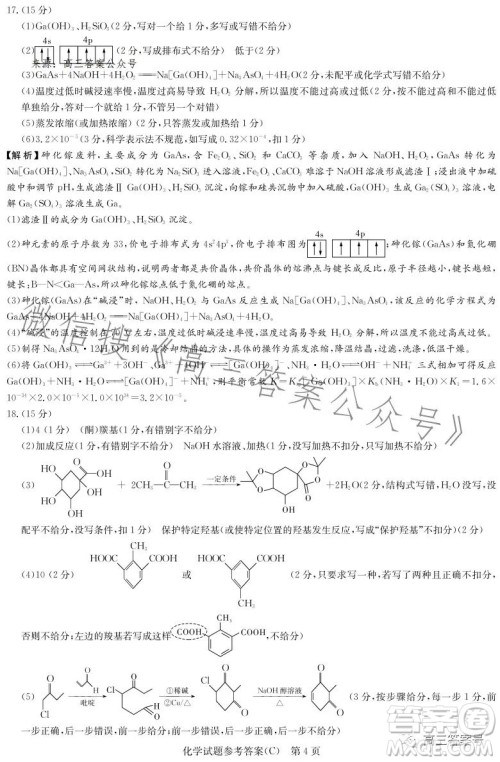 17.(15分)
(1)Ga(OH)₃、H₂SiO₃(2分,写对一个给1分,多写或写错不给分)
4s 4p
(2) (2分,写成排布式不给分) 低于(2分)
来源:高三答案公众号
(3)GaAs+4NaOH+4H₂O₂══Na[Ga(OH)₄]+Na₃AsO₄+4H₂O(2分,未配平或化学式写错不给分)
(4)温度过低时碱浸速率慢,温度过高易导致H₂O₂分解,所以温度不能过高或过低(2分,按不能过高和不能过低
单独给分,答对一个就给1分,不管另一个对错)
(5)蒸发浓缩(或加热浓缩)(2分,只答蒸发或加热给1分)
(6)3.2×10⁻²(3分,科学表示法不规范,如写成0.32×10⁻¹,扣1分)
【解析】砷化镓废料,主要成分为GaAs,含Fe₂O₃、SiO₂和CaCO₃等杂质,加入NaOH、H₂O₂,GaAs转化为
Na[Ga(OH)₄]、Na₃AsO₄,SiO₂转化为Na₂SiO₃进入溶液,Fe₂O₃、CaCO₃难溶于NaOH溶液形成滤渣Ⅰ;浸出液中加硫
酸中和调节pH,生成滤渣Ⅱ Ga(OH)₃、H₂SiO₃沉淀,向镓和硅共沉物中加入硫酸,Ga(OH)₃生成Ga₂(SO₄)₃溶液,电
解Ga₂(SO₄)₃溶液生成Ga。
(1)滤渣Ⅱ的成分为Ga(OH)₃、H₂SiO₃沉淀。
4s 4p
(2)砷元素的原子序数为33,价电子排布式为4s²4p³,价电子排布图为 ;砷化镓(GaAs)和氮化硼
(BN)晶体都具有空间网状结构,说明两者都是共价晶体,共价晶体的熔沸点与键长成反比,原子半径越小,键长越短,
键长:B—N<Ga—As,所以砷化镓熔点低于氮化硼的熔点。
(3)砷化镓(GaAs)在“碱浸”时,NaOH、H₂O₂与GaAs反应生成Na[Ga(OH)₄]、Na₃AsO₄,该反应的化学方程式为
GaAs+4NaOH+4H₂O₂══Na[Ga(OH)₄]+Na₃AsO₄+4H₂O。
(4)“碱浸”的温度控制在 左右,温度过低时碱浸速率慢,温度过高易导致H₂O₂分解,所以温度不能过高或过低。
(5)制得Na₃AsO₄·12H₂O用到的是冷却结晶的方法,具体的操作为蒸发浓缩,降温结晶,过滤,洗涤,低温干燥。
微信搜《高三答案公众号》
18.(15分)
(1)4(1分) (酮)羰基(1分,有错别字不给分)
(2)加成反应(1分,有错别字不给分) NaOH水溶液、加热(1分,没写加热不给分)
(3) HO COOH HO OH OH +2CH₃ CH₃ 一定条件 +2H₂O(2分,结构式写错,H₂O没写,没
配平不给分,没写条件,扣1分) 保护特定羟基(或使特定位置的羟基发生反应,写成“保护羟基”不扣分)(2分)
(4)10(2分) HOOC CH₃ COOH 或 HOOC COOH CH₃ (2分,只要求写一种,若写了两种且正确不扣分,
否则不给分;左边的羧基若写成这样 COOH CH₃ COOH ,不给分)
(5) Cl 吡啶 Cl ①稀碱 ②Cu/△ Cl NaOH醇溶液 △ (3分,按步骤给分,每一步1分,前
一步正确,后一步错误,前一步给分,后一步不给分;前一步错误,后一步正确,前一步后一步都不给分)
化学试题参考答案(C) 第4页
答案圈
高三答案号
MXQE.COM